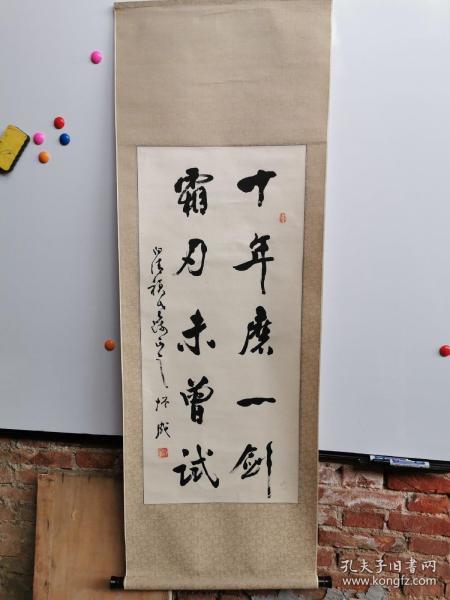 十年磨一剑
霜刃未曾试
孔夫子旧书网
www.kongfz.com